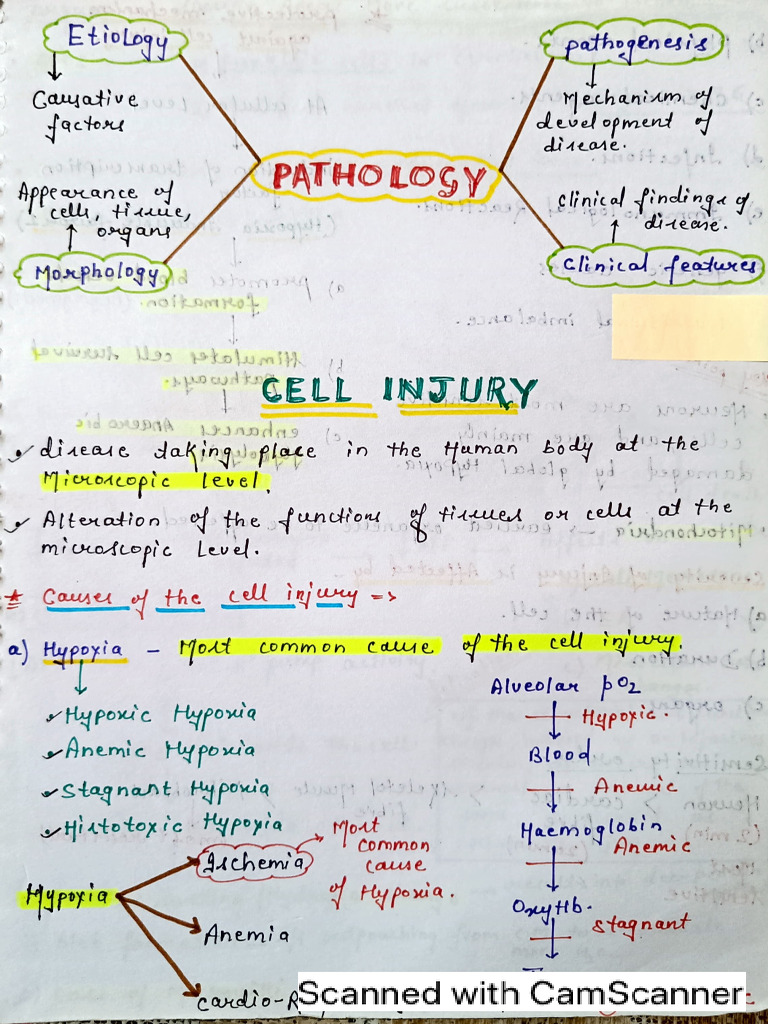 Etiology
Causative
factors
pathogenesis
Mechanism of
development of
disease.
PATHOLOGY
Appearance of
cells, tissue,
organs
Morphology
Clinical findings of
disease.
Clinical features
CELL INJURY
disease taking place in the Human body at the
Microscopic level.
Alteration of the functions of tissues or cells at the
microscopic level.
* Causes of the cell injury =>
a) Hypoxia – Most common cause of the cell injury.
Hypoxic Hypoxia
Anemic Hypoxia
Stagnant Hypoxia
Histotoxic Hypoxia
Alveolar pO2
Hypoxic.
Blood
Anemic
Haemoglobin
Anemic
OxyHb.
Stagnant
Hypoxia
Ischemia
Most
common
cause
of Hypoxia.
Anemia
cardio-R
Scanned with CamScanner